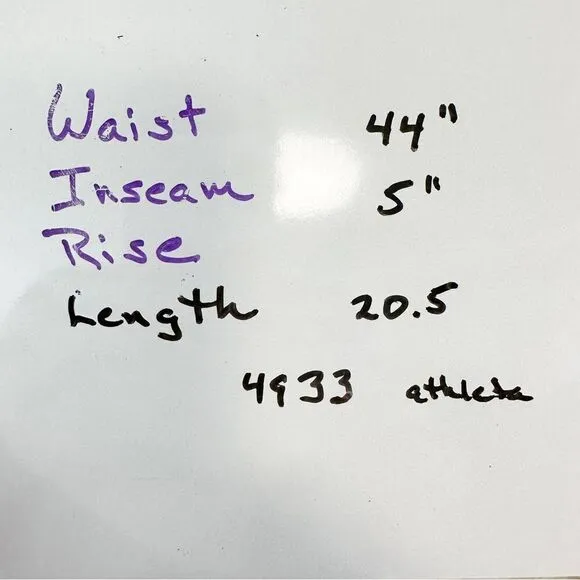 Waist 44"
Inseam 5"
Rise
Length 20.5
4933 athleta